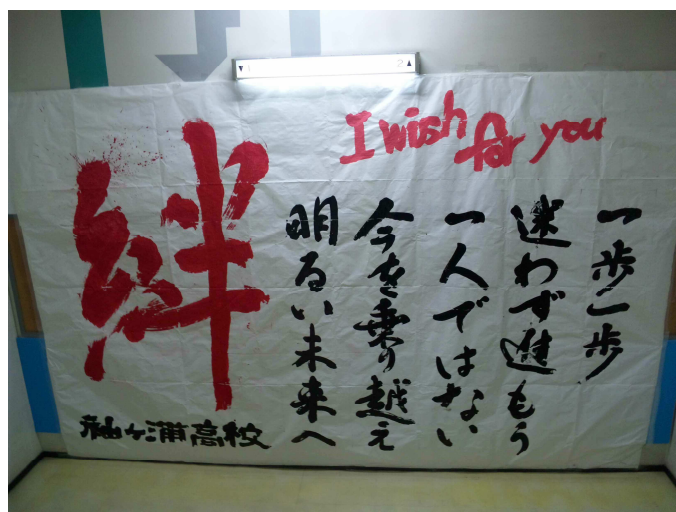 I wish for you
一歩一歩
迷わず進もう
一人ではない
今を乗り越え
明るい未来へ
絆
袖ヶ浦高校
2▲